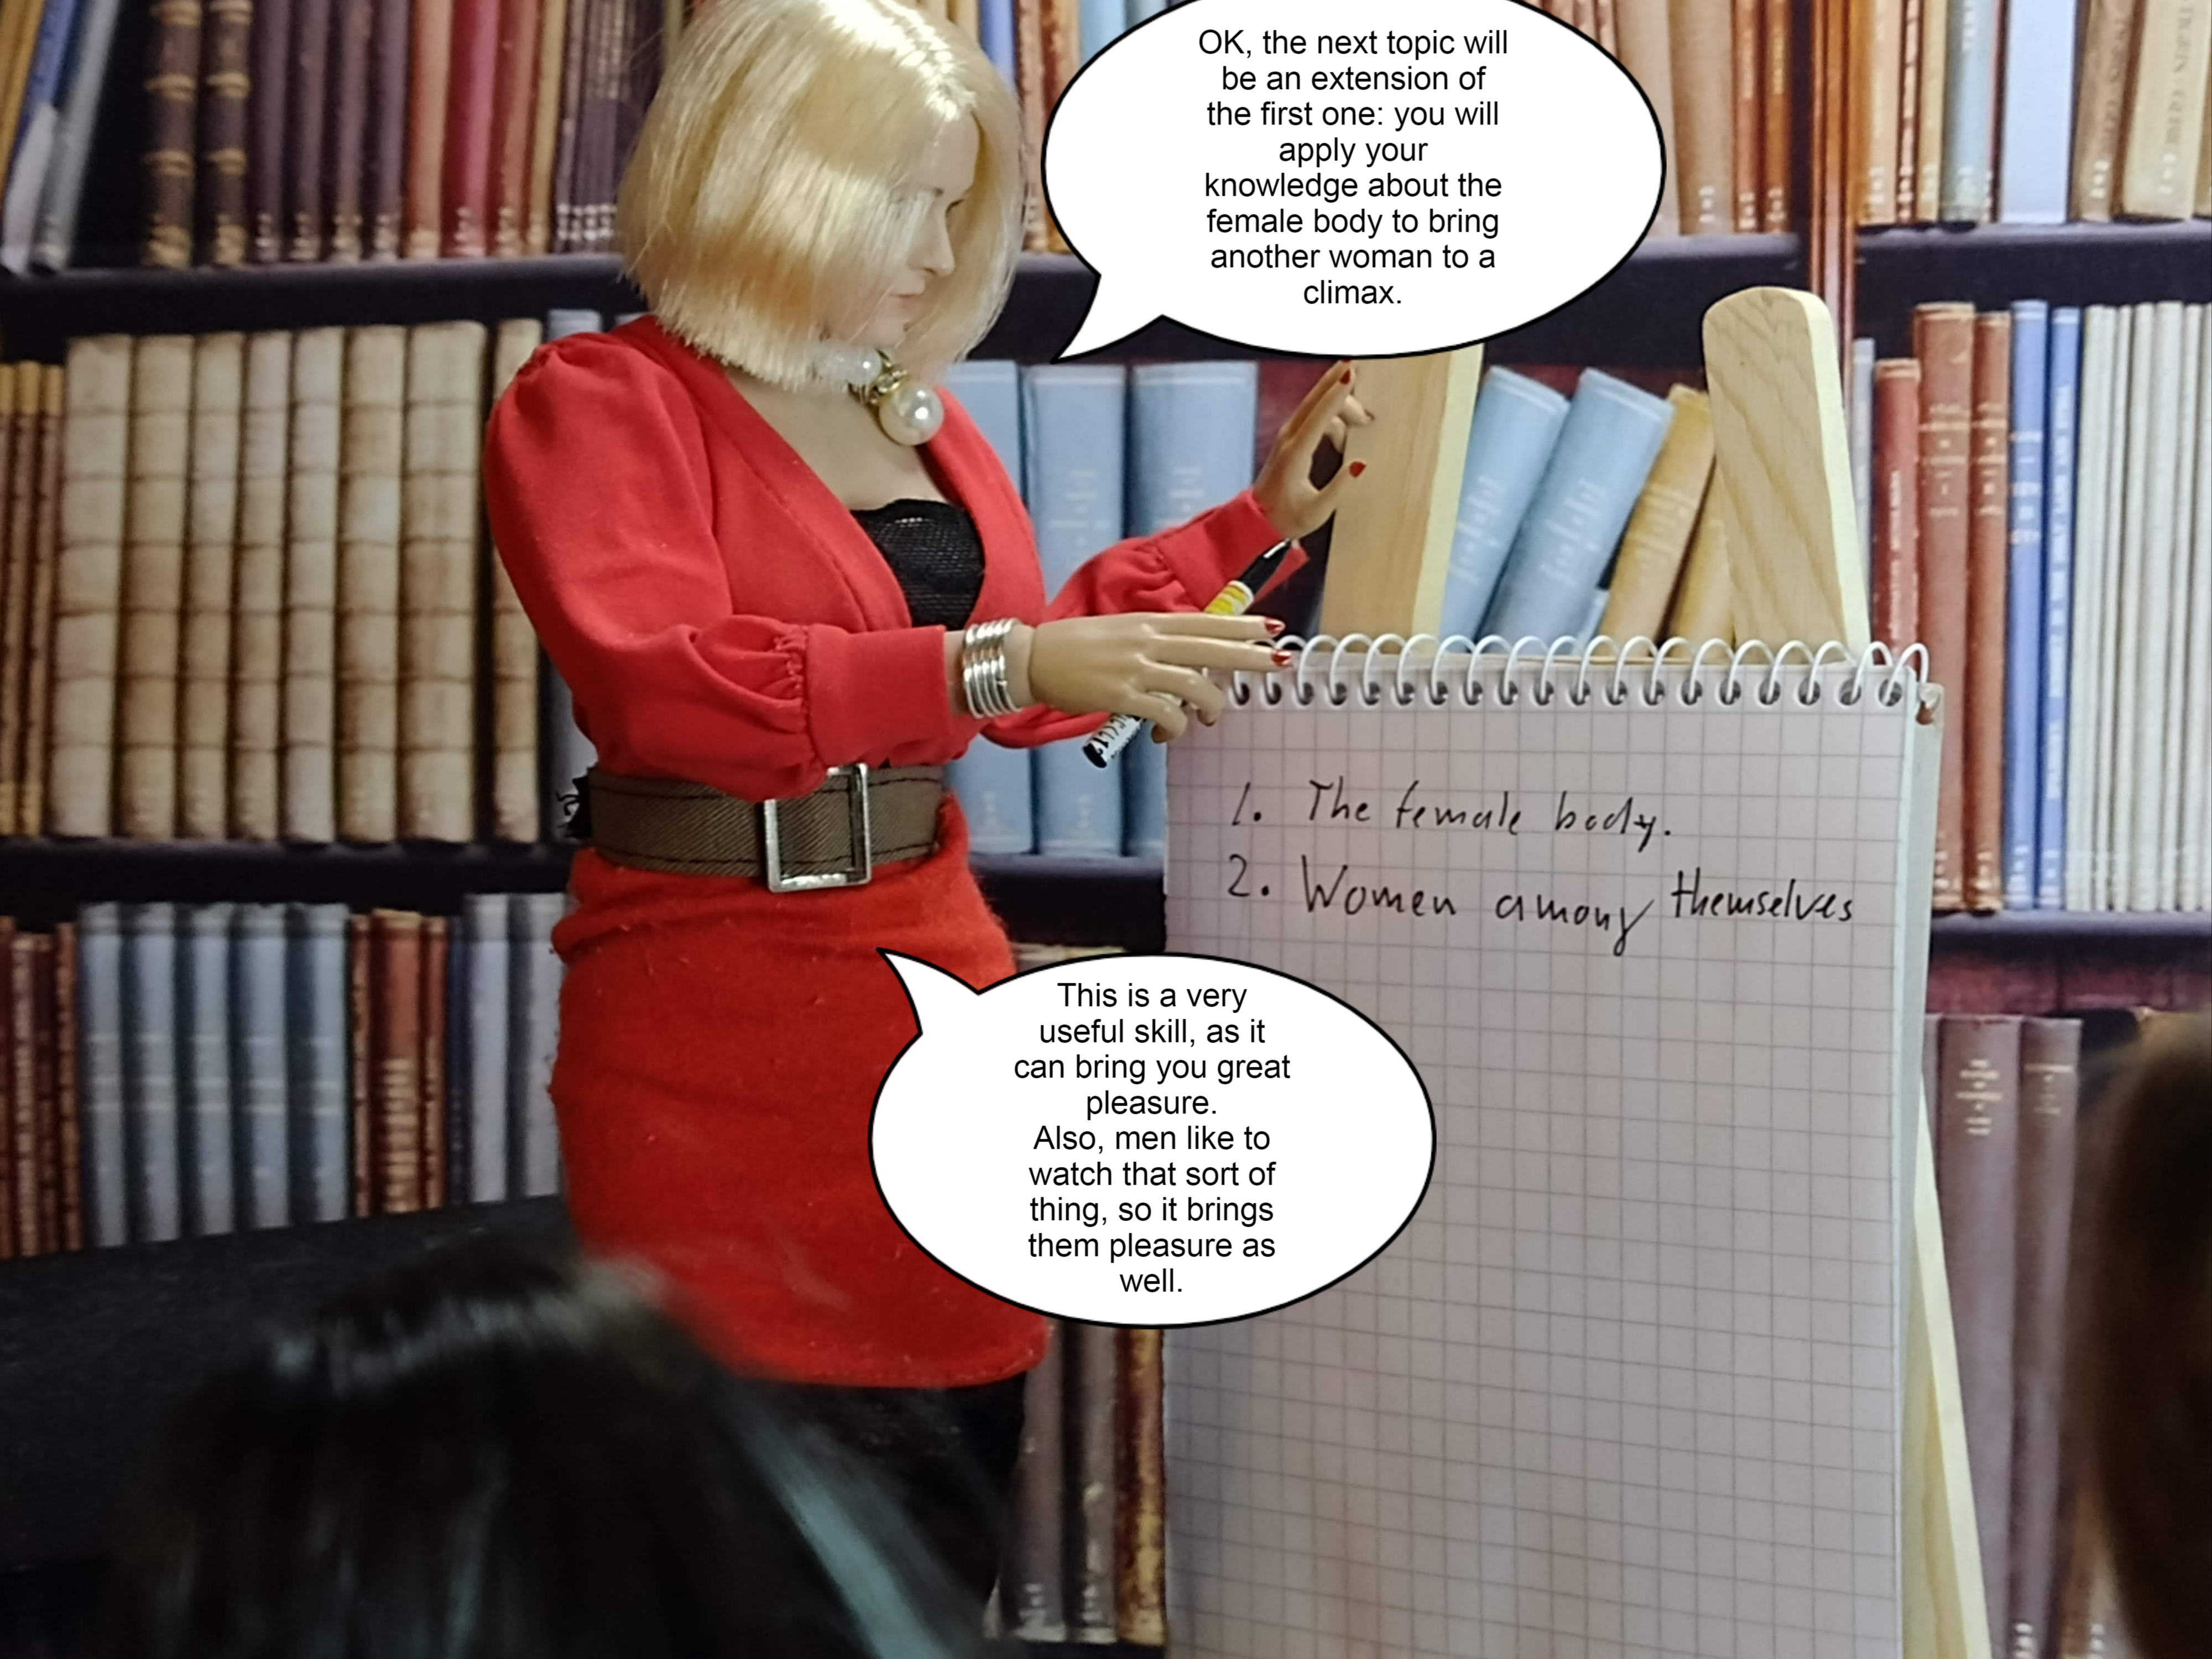 OK, the next topic will
be an extension of
the first one: you will
apply your
knowledge about the
female body to bring
another woman to a
climax.
1. The female body.
2. Women among themselves
This is a very
useful skill, as it
can bring you great
pleasure.
Also, men like to
watch that sort of
thing, so it brings
them pleasure as
well.